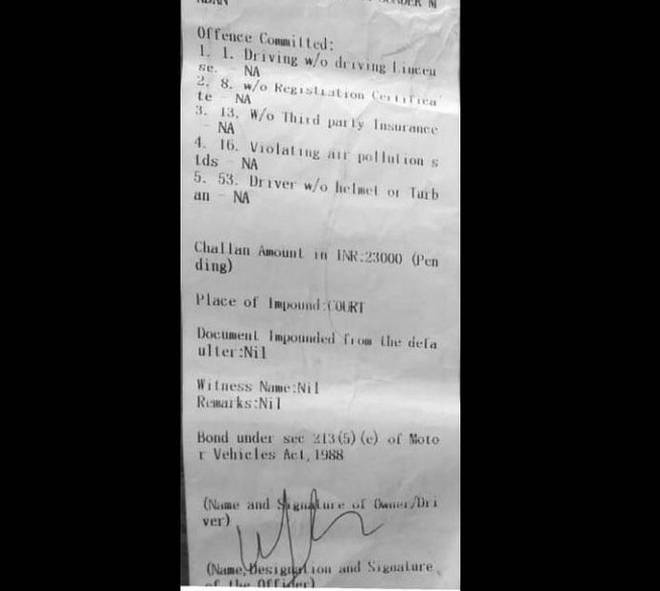 Offence Committed:
1. 1. Driving w/o driving Lincen
se. - NA
2. 8. w/o Registration Certifica
te - NA
3. 13. W/o Third party Insurance
- NA
4. 16. Violating air pollution s
tds - NA
5. 53. Driver w/o helmet or Turb
an - NA
Challan Amount in INR:23000 (Pen
ding)
Place of Impound:COURT
Document Impounded from the defa
ulter:Nil
Witness Name:Nil
Remarks:Nil
Bond under sec 213(5)(e) of Moto
r Vehicles Act, 1988
(Name and Signature of Owner/Dri
ver)
(Name, Designation and Signature
of the Officer)